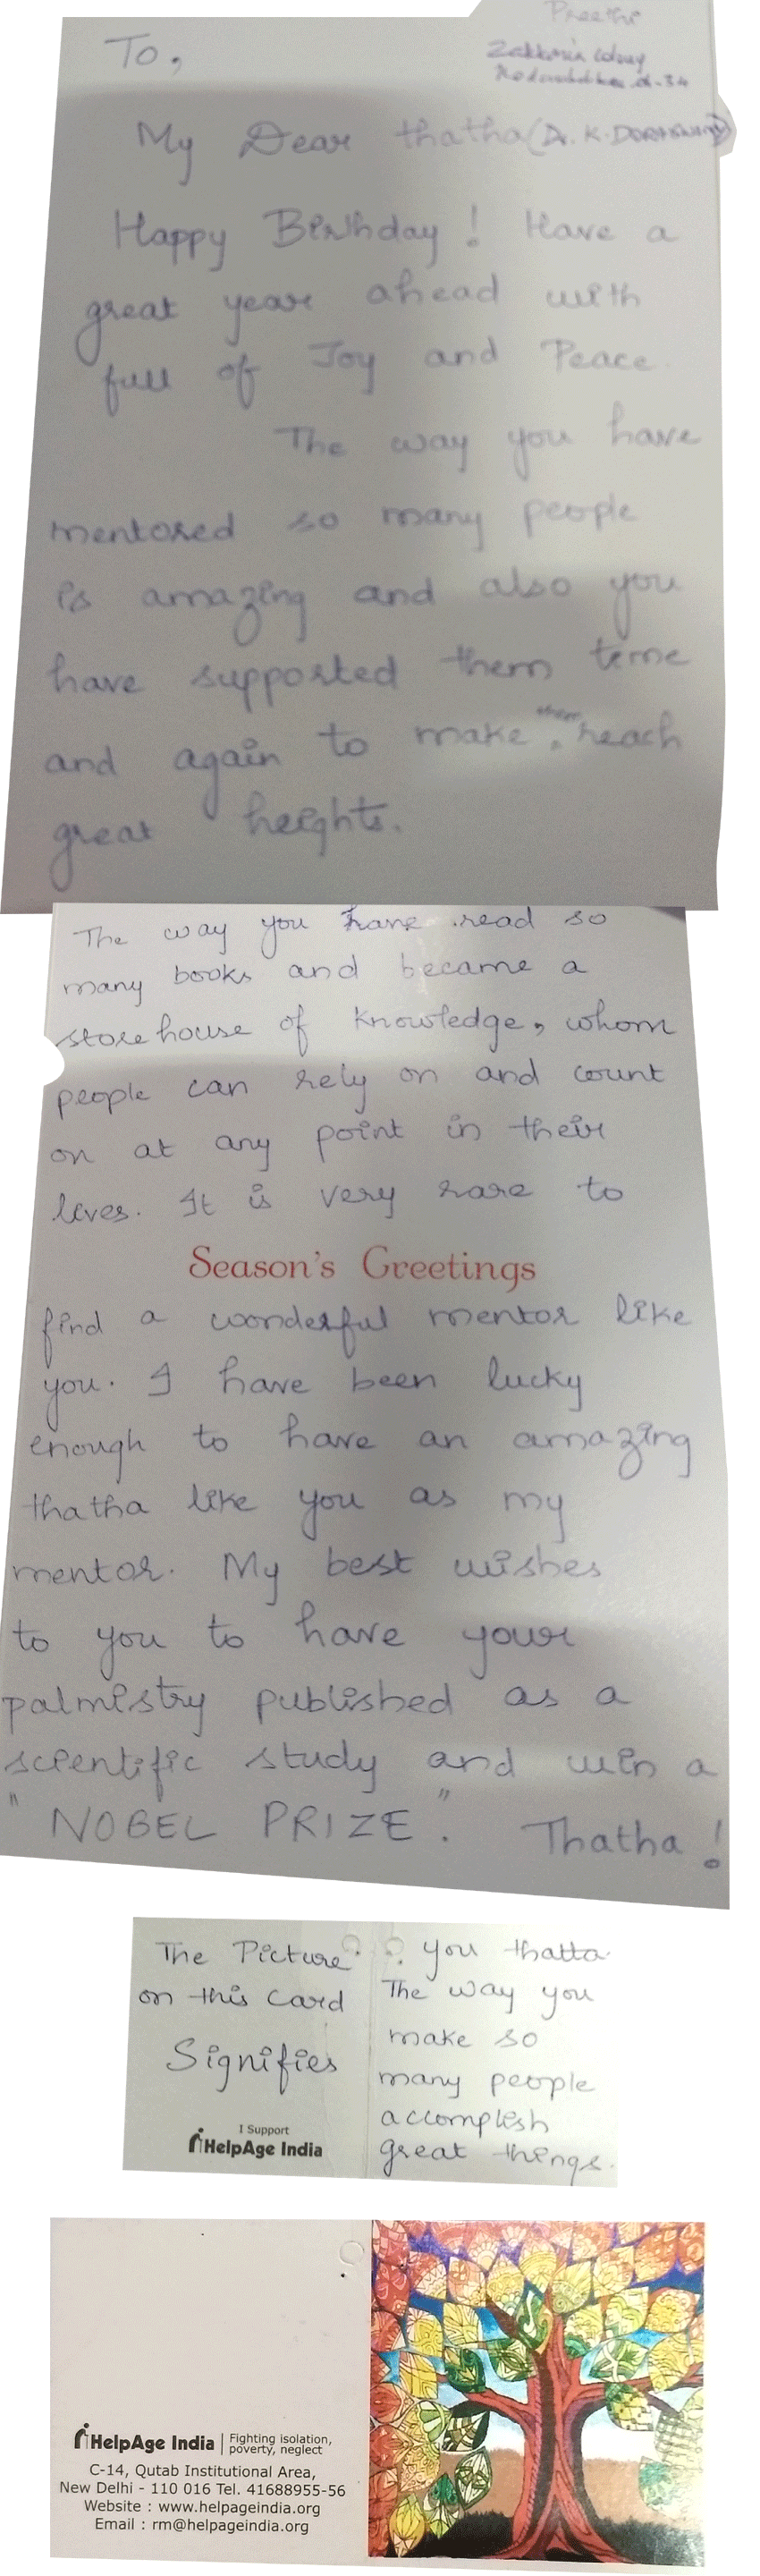 Preethi
Zakkaria Colony
To,
My Dear thatha (Dr. K. DORAISWAMY)
Happy Birthday! Have a
great year ahead with
full of Joy and Peace.
The way you have
mentored so many people
is amazing and also you
have supported them time
and again to make them reach
great heights.
The way you have read so
many books and became a
store house of knowledge, whom
people can rely on and count
on at any point in their
lives. It is very rare to
Season's Greetings
find a wonderful mentor like
you. I have been lucky
enough to have an amazing
thatha like you as my
mentor. My best wishes
to you to have your
palmistry published as a
scientific study and win a
"NOBEL PRIZE". Thatha!
The Picture
on this Card
Signifies
I Support
HelpAge India
you thatta.
The way you
make so
many people
accomplish
great things.
HelpAge India | Fighting isolation,
poverty, neglect
C-14, Qutab Institutional Area,
New Delhi - 110 016 Tel. 41688955-56
Website : www.helpageindia.org
Email : rm@helpageindia.org